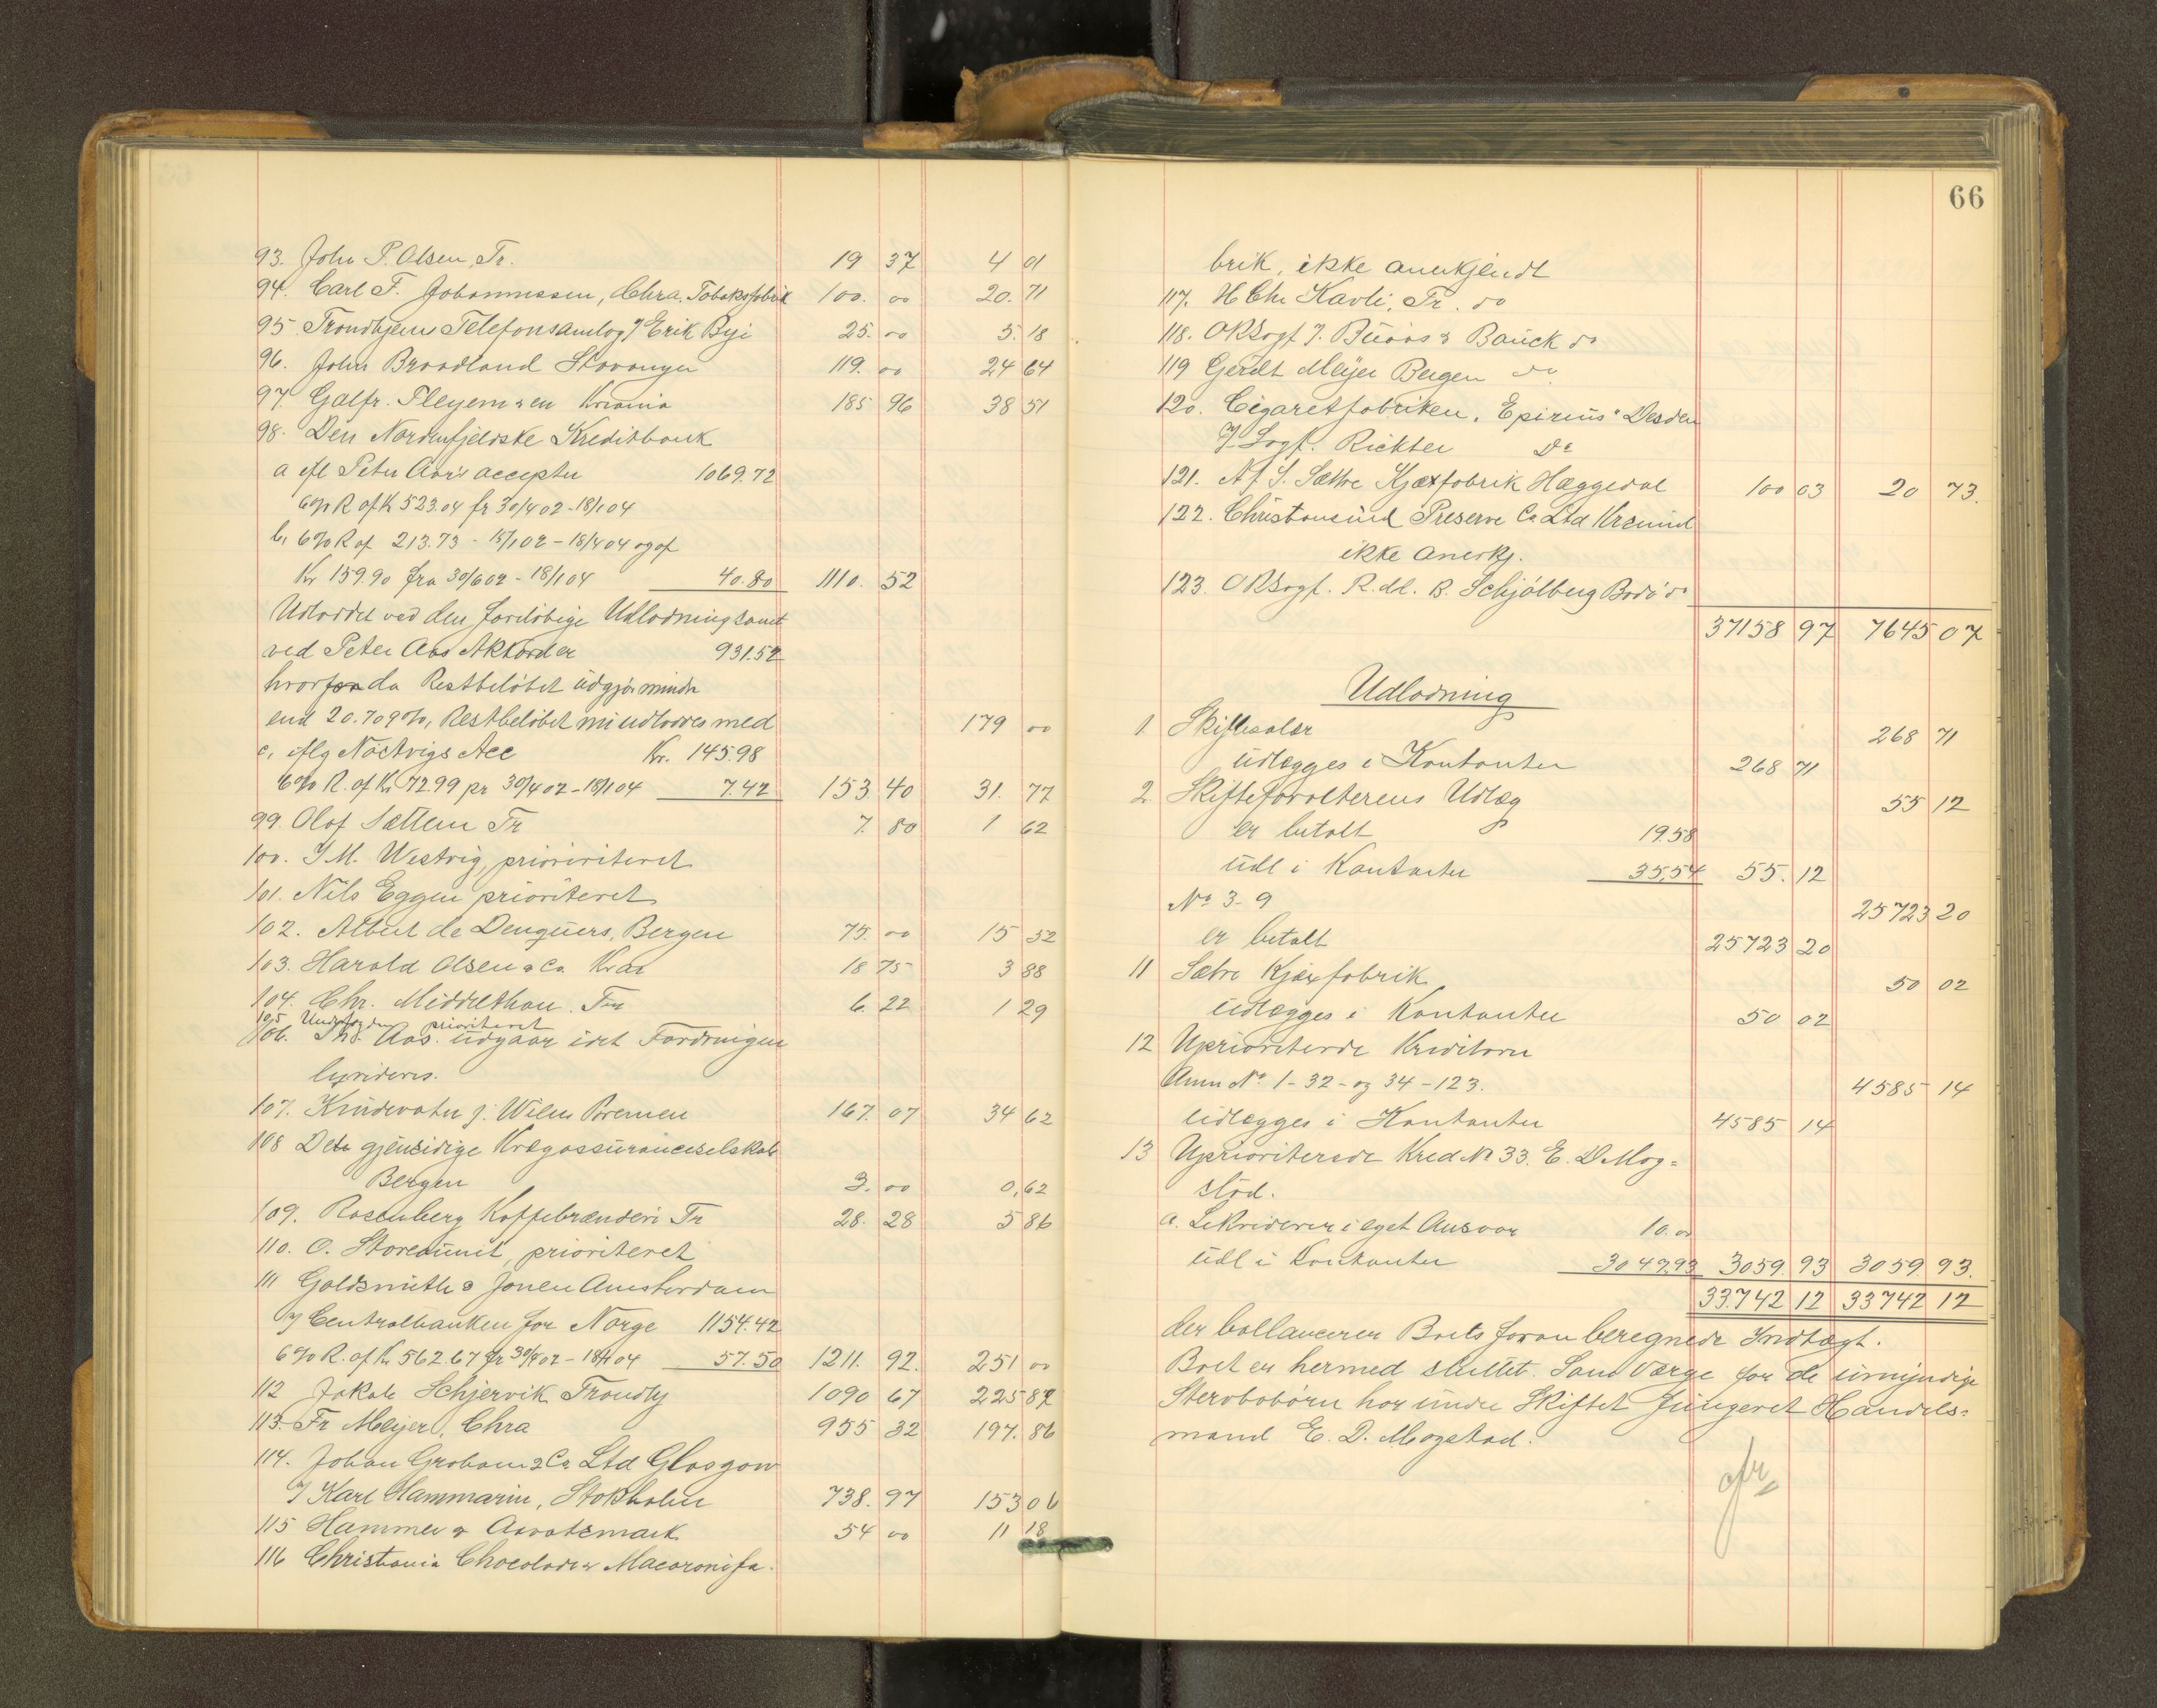 93. John P. Olsen, Tr. 19 37 4 01
94. Carl F. Johannessen, Chra. Tobaksfabrik 100. 00 20. 71
95 Trondhjems Telefonsamlag v/ Erik Bye 25. 00 5. 18
96. John Braadland Stavanger 119. 00 24 64
97. Galfr. Kr.ania 185 96 38 51
98. Den Nordenfjeldske Kreditbank
a efl Peter Aas's accepter 1069.72
6% R af K 523.04 fr 30/4 02 - 18/1 04
b, 6% R af 213.73 - 15/1 02 - 18/4 04 og af
Kr 159.90 fra 30/6 02 - 18/1 04 40.80 1110. 52
Udloddet ved den foreløbige Udlodning samt
ved Peter Aas Akkorder 931.52
hvorfor da Restbeløbet udgjør mindre
end 20.709%, Restbeløbet udloddes med 179 00
c, iflg Næstvigs Acc Kr. 145.98
6% R. af Kr 72.99 pr 30/4 02 - 18/1 04 7.42 153. 40 31. 77
99. Olaf Sættem Tr 7. 80 1 62
100. J M. Westvig, prioririteret
101. Nils Eggen prioriteret
102. Albert de Denguers, Bergen 75. 00 15 52
103. Harald Olsen & Co. Kr.ae 18 75 3 88
104. Chr. Middelthon. Tr 6. 22 1 29
105 prioriteret
106. Th. Aas. udgaar idet Fordringen
ligvideres.
107. Kindervater j. Wilm Bremen 167. 07 34 62
108 Det gjensidige Kvægassuranceselskab
Bergen 3. 00 0, 62
109. Rosenberg Kaffebrænderi Tr 28. 28 5 86
110. O. Storeaunit, prioriteret
111 Goldsmith & Jonen Amsterdam
v/ Centralbanken for Norge 1154.42
6% R. af Kr 562.67 fr 30/4 02 - 18/1 04 57.50 1211. 92. 251 00
112 Jakob Schjervik Trondhj 1090 67 225 87
113. Fr Meyer, Chra 955 32 197. 86
114. Johan Graham & Co Ltd Glasgow
v/ Karl Hammarin, Stokholm 738. 97 153 06
115 Hammer & Aavatsmark 54 00 11 18
116 Christiania Chocolade & Macaronifa-
66
brik, ikke anerkjendt
117. H Chr Kavli, Tr. do
118. ORSagf J. Buaas & Bauck do
119 Gerdt Meyer Bergen do
120. Cigaretfabriken "Epirus" Dresden
v/ Sagf. Richter Do
121. A/S. Sætre Kjæxfabrik Hæggedal 100 03 20 73.
122. Christansund Preserve Co Ltd Kr.sund
ikke anerkj.
123. ORSagf. R. dl. B. Schjølberg Bodø do
37158 97 7645 07
Udlodning
1. Skiftesalær 268 71
udlægges i Kontanter 268 71
2. Skifteforvalterens Udlæg 55 12
er betalt 19.58
udl i Kontanter 35.54 55. 12
No 3-9 25723 20
er betalt 25723 20
11 Sætre Kjæxfabrik 50 02
udlægges i Kontanter 50 02
12 Uprioriterede Kreditorer
Anm No 1-32 - og 34-123. 4585 14
udlægges i Kontanter 4585 14
13 Uprioriterede Kred No 33. E. D Mog=
stad.
a. Likviderer i eget Ansvar 10.00
udl i Kontanter 3049.93 3059. 93 3059. 93.
33.742 12 33742 12
der ballancerer Boets foran beregnede Indtægt.
Boet er hermed sluttet. Som Værge for de umyndige
Stervbobørn har under Skiftet fungeret Handels=
mand E. D. Mogstad.